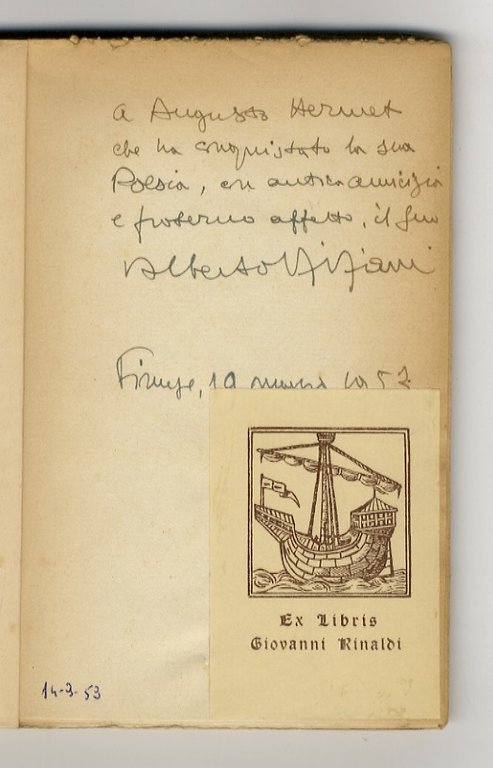 a Augusto Hermet
che ha conquistato la sua
Poesia, con antica amicizia
e fraterno affetto, il suo
Alberto Viviani
Firenze, 10 marzo 1953
Ex Libris
Giovanni Rinaldi
14-3-53